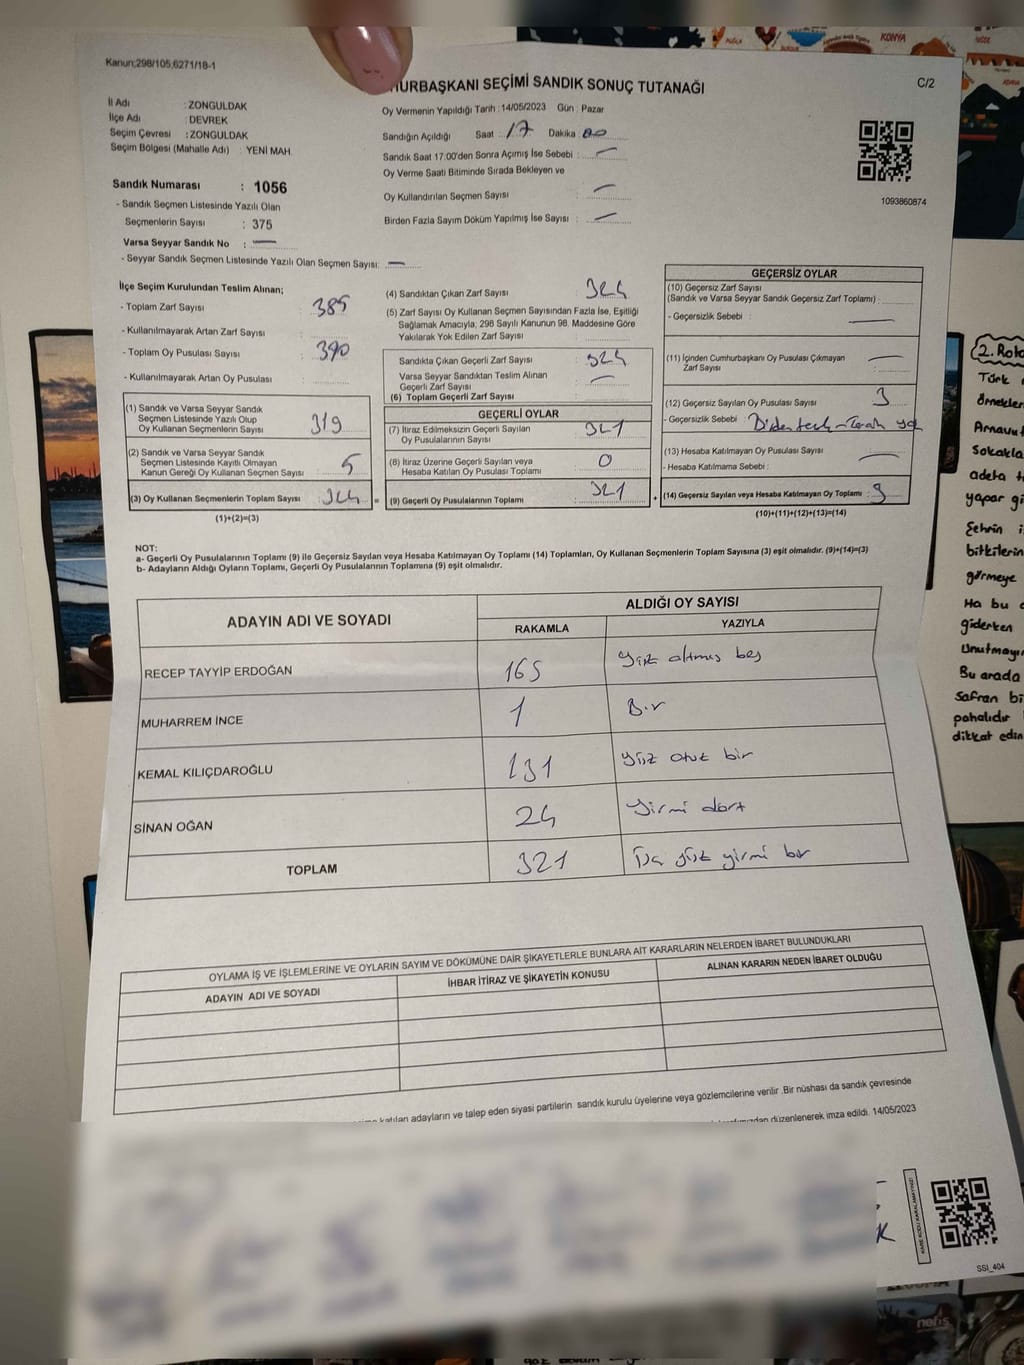 Kanun;298/105,6271/18-1
C/2
URBAŞKANI SEÇİMİ SANDIK SONUÇ TUTANAĞI
İl Adı : ZONGULDAK
İlçe Adı : DEVREK
Seçim Çevresi : ZONGULDAK
Seçim Bölgesi (Mahalle Adı) : YENİ MAH.
Sandık Numarası : 1056
- Sandık Seçmen Listesinde Yazılı Olan
Seçmenlerin Sayısı : 375
Varsa Seyyar Sandık No : —
- Seyyar Sandık Seçmen Listesinde Yazılı Olan Seçmen Sayısı: —
Oy Vermenin Yapıldığı Tarih : 14/05/2023 Gün : Pazar
Sandığın Açıldığı Saat 17 Dakika 00
Sandık Saat 17:00'den Sonra Açımış İse Sebebi : —
Oy Verme Saati Bitiminde Sırada Bekleyen ve
Oy Kullandırılan Seçmen Sayısı : —
Birden Fazla Sayım Döküm Yapılmış İse Sayısı : —
1093860874
İlçe Seçim Kurulundan Teslim Alınan;
- Toplam Zarf Sayısı : 385
- Kullanılmayarak Artan Zarf Sayısı :
- Toplam Oy Pusulası Sayısı : 390
- Kullanılmayarak Artan Oy Pusulası :
(1) Sandık ve Varsa Seyyar Sandık
Seçmen Listesinde Yazılı Olup
Oy Kullanan Seçmenlerin Sayısı : 319
(2) Sandık ve Varsa Seyyar Sandık
Seçmen Listesinde Kayıtlı Olmayan
Kanun Gereği Oy Kullanan Seçmen Sayısı : 5
(3) Oy Kullanan Seçmenlerin Toplam Sayısı : 324 =
(1)+(2)=(3)
(4) Sandıktan Çıkan Zarf Sayısı : 324
(5) Zarf Sayısı Oy Kullanan Seçmen Sayısından Fazla İse, Eşitliği
Sağlamak Amacıyla, 298 Sayılı Kanunun 98. Maddesine Göre
Yakılarak Yok Edilen Zarf Sayısı :
Sandıkta Çıkan Geçerli Zarf Sayısı : 324
Varsa Seyyar Sandıktan Teslim Alınan
Geçerli Zarf Sayısı : —
(6) Toplam Geçerli Zarf Sayısı :
GEÇERLİ OYLAR
(7) İtiraz Edilmeksizin Geçerli Sayılan
Oy Pusulalarının Sayısı : 321
(8) İtiraz Üzerine Geçerli Sayılan veya
Hesaba Katılan Oy Pusulası Toplamı : 0
(9) Geçerli Oy Pusulalarının Toplamı : 321 +
GEÇERSİZ OYLAR
(10) Geçersiz Zarf Sayısı
(Sandık ve Varsa Seyyar Sandık Geçersiz Zarf Toplamı) :
- Geçersizlik Sebebi : —
(11) İçinden Cumhurbaşkanı Oy Pusulası Çıkmayan
Zarf Sayısı : —
(12) Geçersiz Sayılan Oy Pusulası Sayısı : 3
- Geçersizlik Sebebi :
(13) Hesaba Katılmayan Oy Pusulası Sayısı : —
- Hesaba Katılmama Sebebi :
(14) Geçersiz Sayılan veya Hesaba Katılmayan Oy Toplamı : 3
(10)+(11)+(12)+(13)=(14)
NOT:
a- Geçerli Oy Pusulalarının Toplamı (9) ile Geçersiz Sayılan veya Hesaba Katılmayan Oy Toplamı (14) Toplamları, Oy Kullanan Seçmenlerin Toplam Sayısına (3) eşit olmalıdır. (9)+(14)=(3)
b- Adayların Aldığı Oyların Toplamı, Geçerli Oy Pusulalarının Toplamına (9) eşit olmalıdır.
ADAYIN ADI VE SOYADI ALDIĞI OY SAYISI
RAKAMLA YAZIYLA
RECEP TAYYİP ERDOĞAN 165 yüz altmış beş
MUHARREM İNCE 1 Bir
KEMAL KILIÇDAROĞLU 131 yüz otuz bir
SİNAN OĞAN 24 yirmi dört
TOPLAM 321 üç yüz yirmi bir
OYLAMA İŞ VE İŞLEMLERİNE VE OYLARIN SAYIM VE DÖKÜMÜNE DAİR ŞİKAYETLERLE BUNLARA AİT KARARLARIN NELERDEN İBARET BULUNDUKLARI
ADAYIN ADI VE SOYADI İHBAR İTİRAZ VE ŞİKAYETİN KONUSU ALINAN KARARIN NEDEN İBARET OLDUĞU
katılan adayların ve talep eden siyasi partilerin sandık kurulu üyelerine veya gözlemcilerine verilir .Bir nüshası da sandık çevresinde
düzenlenerek imza edildi. 14/05/2023
KARE KODU KARALAMAYINIZ!
SSI_404
KONYA
2. Rota
Türk
örnekler
Arnavut
Sokakla
adeta t
yapar gi
Şehrin i
bitkilerin
görmeye
Ha bu
giderken
Unutmayı
Bu arada
Safran bi
pahalıdır
dikkat edin
nefis